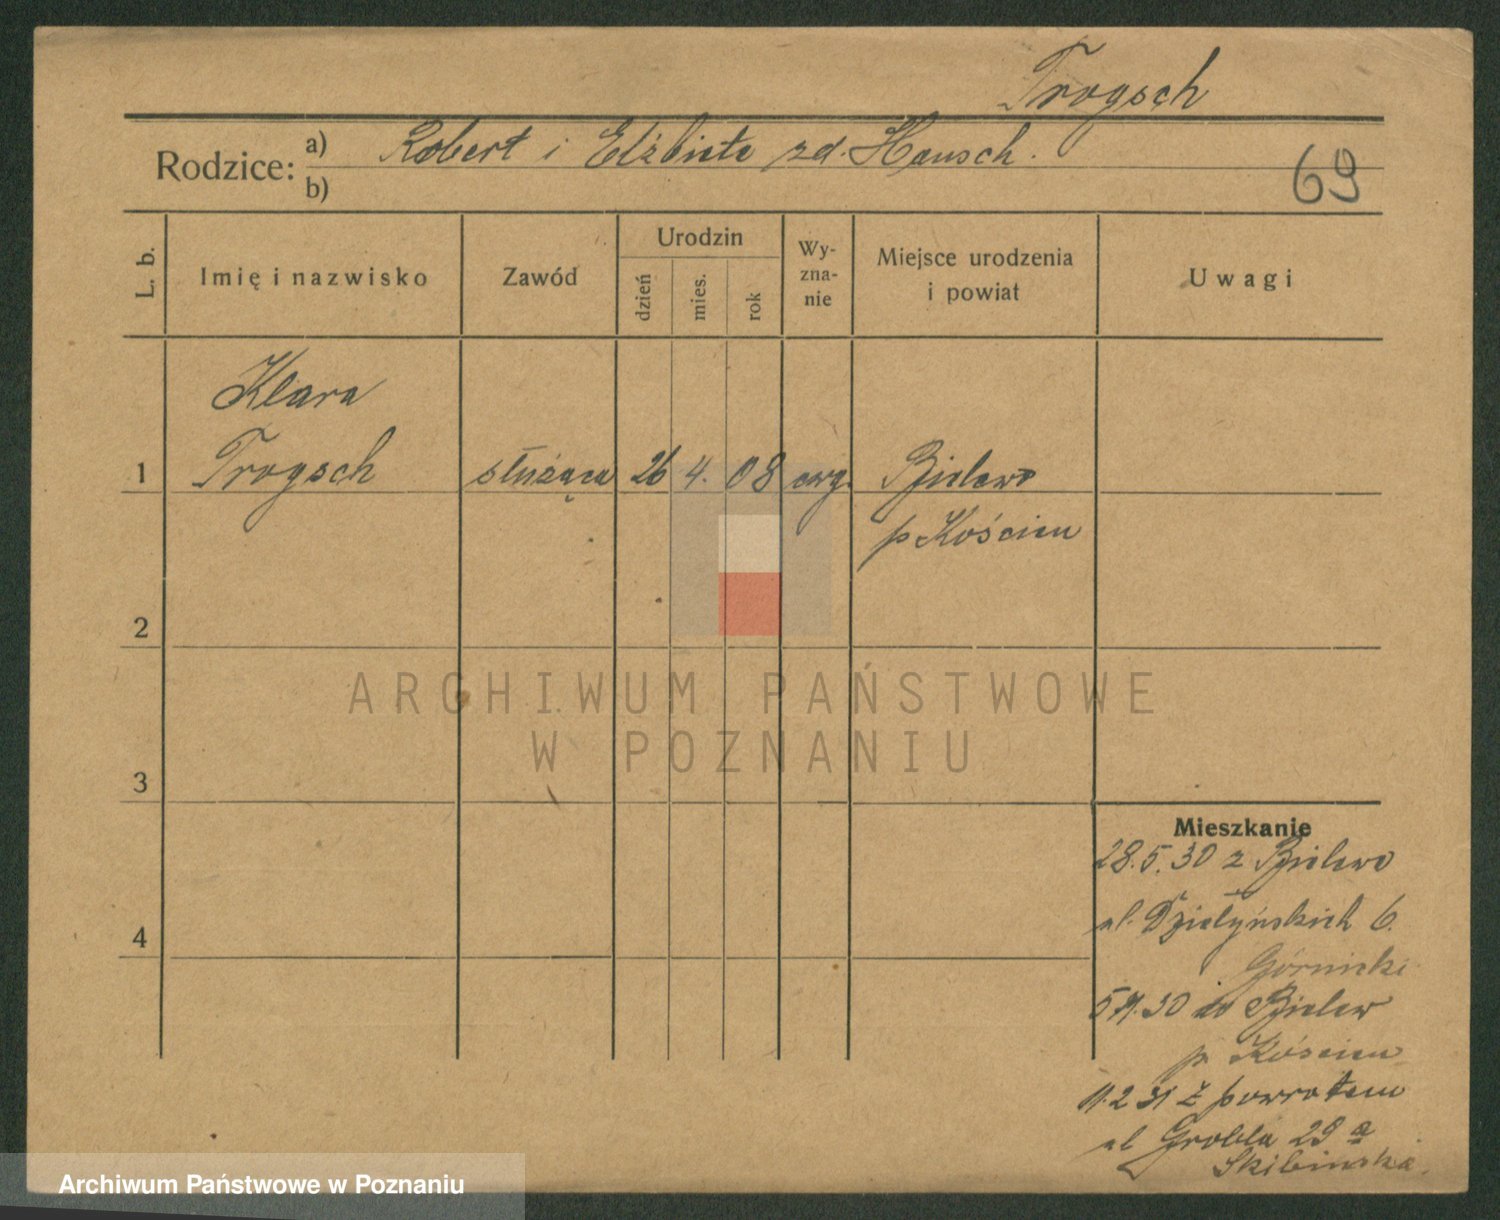 Trogsch
Rodzice: a) Robert i Elżbieta zd. Hausch.
b)
69
L. b.
Imię i nazwisko
Zawód
Urodzin
dzień
mies.
rok
Wy-
zna-
nie
Miejsce urodzenia
i powiat
Uwagi
Klara
1 Trogsch służąca 26 4. 08 ewg. Bielewo
p Kościan
2
3
4
Mieszkanie
28.5.30 z Bielewo
ul. Działyńskich 6.
Górnicki
30 do Bielew
p. Kościan
11.2 31 z powrotem
ul Grobla 29 a
Skibińska.
ARCHIWUM PAŃSTWOWE
W POZNANIU
Archiwum Państwowe w Poznaniu